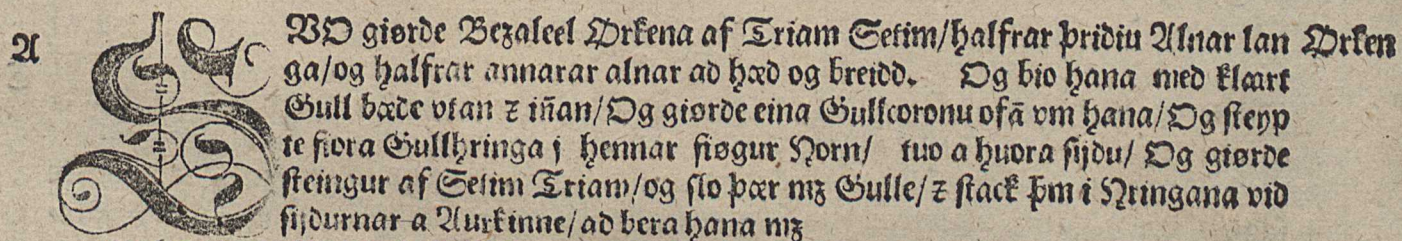 A SVO giørde Bezaleel Ørkena af Triam Setim/halfrar þridiu Alnar lan Ørken
ga/og halfrar annarar alnar ad hæd og breidd. Og bio hana med klært
Gull bæde vtan ꝛ iñan/Og giørde eina Gullcoronu ofā vm hana/Og steyp
te fiora Gullhringa j hennar fiøgur Horn/ tuo a huora sijdu/ Og giørde
steingur af Setim Triam/og slo þær mꝫ Gulle/ꝛ stack þm i Hringana vid
sijdurnar a Aurkinne/ad bera hana mꝫ